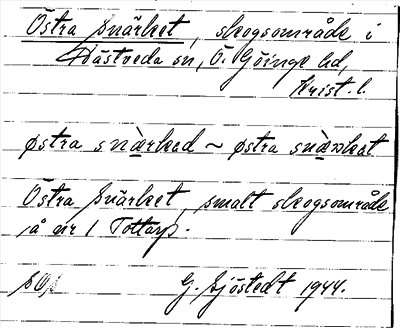 Östra Snärket, skogsområde i
Västveda sn, Ö. Göinge hd,
Krist. l.
østra snàrkad ~ østra snàrkat
Östra Snärket, smalt skogsområde
å nr 1 Tottarp.
G. Sjöstedt 1944.